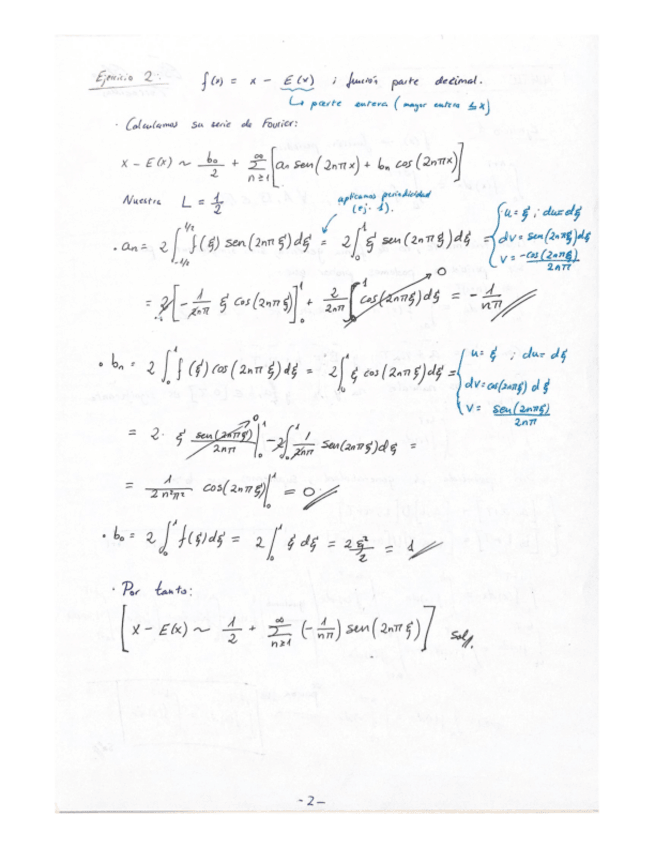 Ejercicio 2: f(x) = x - E(x) ; función parte decimal.
↳ parte entera (mayor entero ≤ x)
· Calculamos su serie de Fourier:
x - E(x) ~ b₀/2 + ∞Σn≥1 [an sen(2nπx) + bn cos(2nπx)]
Nuestra L = 1/2
aplicamos periodicidad
(ej. 1).
· an = 2 ∫_{-1/2}^{1/2} f(ξ) sen(2nπξ)dξ = 2 ∫_0^1 ξ sen(2nπξ)dξ = { u = ξ ; du = dξ
dv = sen(2nπξ)dξ
v = -cos(2nπξ)/2nπ
= 2[-1/2nπ ξ cos(2nπξ)]_0^1 + 2/2nπ ∫_0^1 cos(2nπξ)dξ → 0 = -1/nπ //
· bn = 2 ∫_0^1 f(ξ) cos(2nπξ)dξ = 2 ∫_0^1 ξ cos(2nπξ)dξ = { u = ξ ; du = dξ
dv = cos(2nπξ)dξ
v = sen(2nπξ)/2nπ
= 2 · ξ sen(2nπξ)/2nπ |_0^1 → 0 - 2∫_0^1 1/2nπ sen(2nπξ)dξ =
= 1/2n²π² cos(2nπξ)|_0^1 = 0 //
· b₀ = 2 ∫_0^1 f(ξ)dξ = 2 ∫_0^1 ξ dξ = 2 ξ²/2 = 1 //
· Por tanto:
[x - E(x) ~ 1/2 + ∞Σn≥1 (-1/nπ) sen(2nπξ)] Sol//.
- 2 -